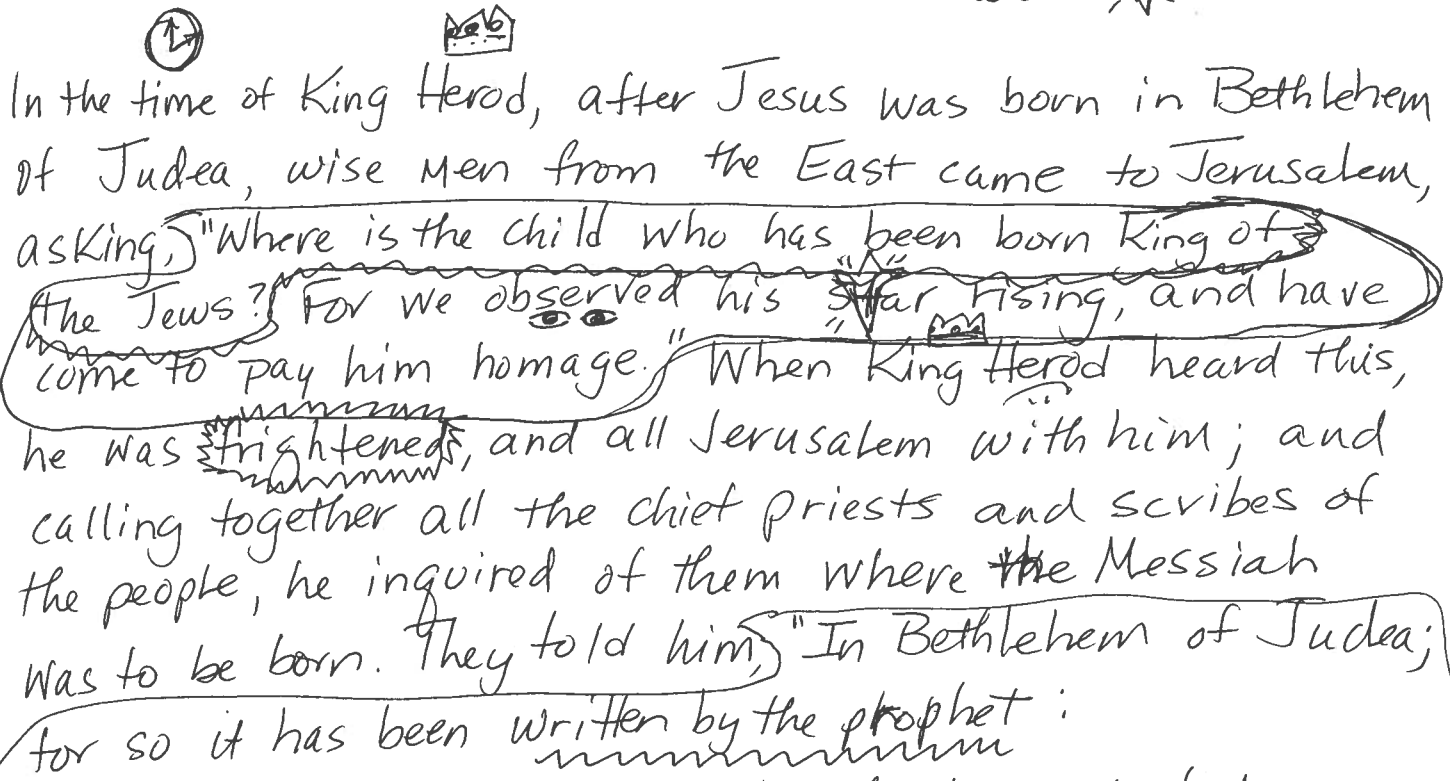 In the time of King Herod, after Jesus was born in Bethlehem
of Judea, wise men from the East came to Jerusalem,
asking, "Where is the child who has been born King of
the Jews? For we observed his star rising, and have
come to pay him homage." When King Herod heard this,
he was frightened, and all Jerusalem with him; and
calling together all the chief priests and scribes of
the people, he inquired of them where the Messiah
was to be born. They told him, "In Bethlehem of Judea;
for so it has been written by the prophet: